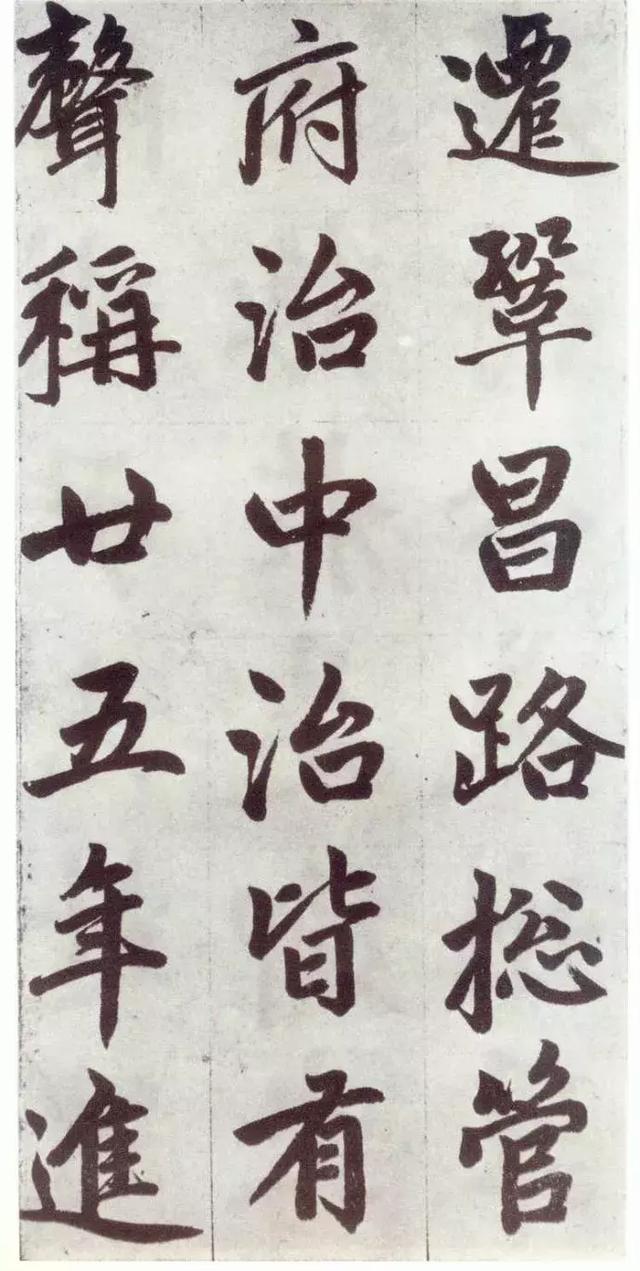 遷鞏昌路揔管
府治中治皆有
聲稱廿五年進